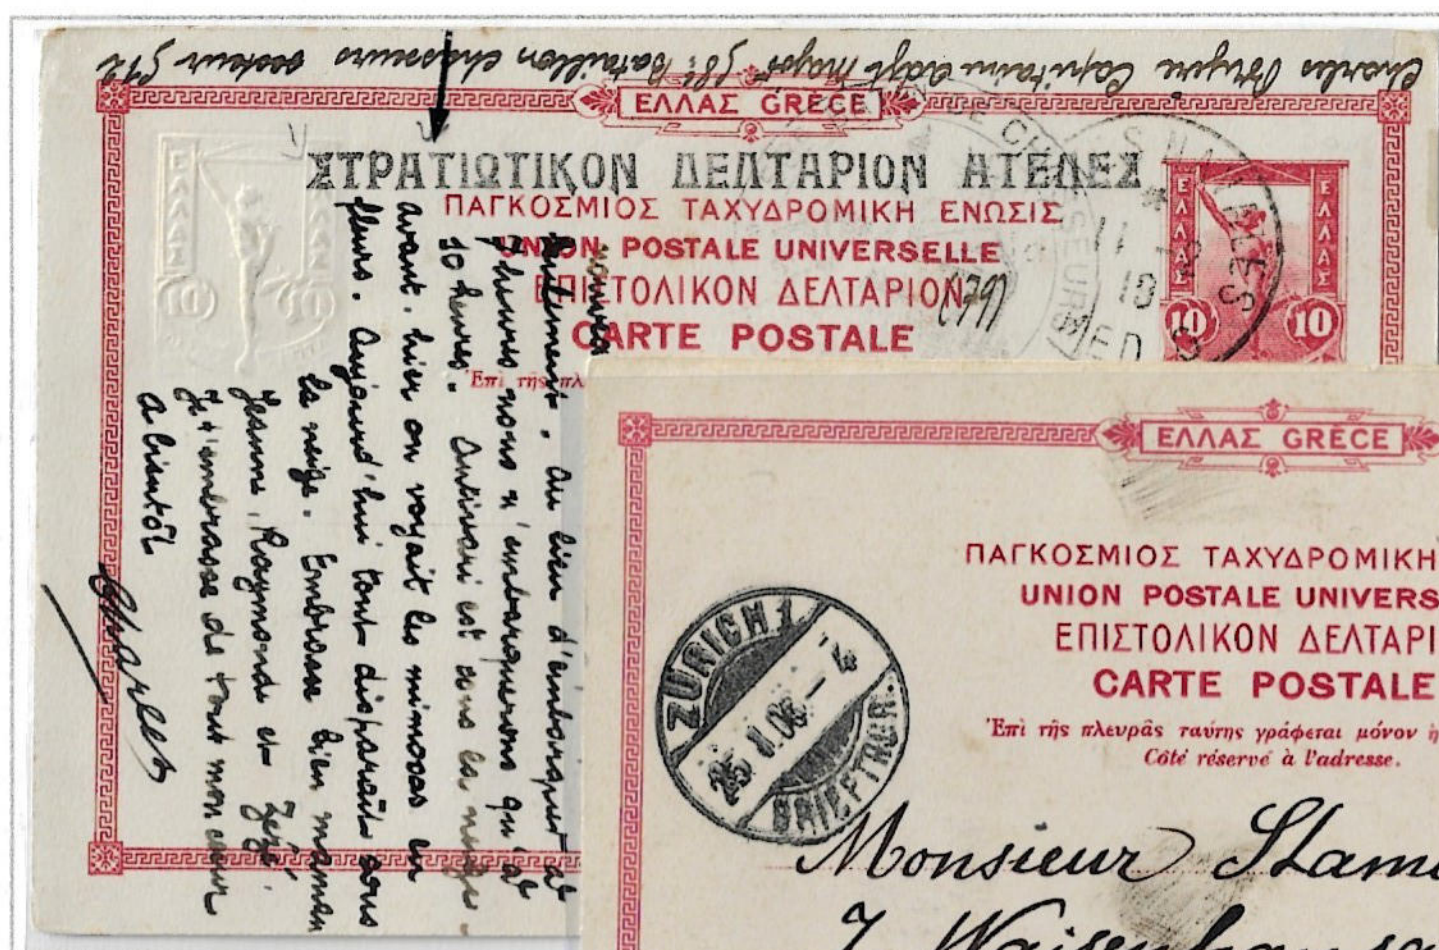 Charles Capitaine adjt major 58e Bataillon chasseurs secteur 512
ΕΛΛΑΣ GRÈCE
ΣΤΡΑΤΙΩΤΙΚΟΝ ΔΕΛΤΑΡΙΟΝ ΑΤΕΛΕΣ
ΠΑΓΚΟΣΜΙΟΣ ΤΑΧΥΔΡΟΜΙΚΗ ΕΝΩΣΙΣ
UNION POSTALE UNIVERSELLE
ΕΠΙΣΤΟΛΙΚΟΝ ΔΕΛΤΑΡΙΟΝ
CARTE POSTALE
Ἐπὶ τῆς πλ
ΕΛΛΑΣ
ΕΛΛΑΣ
10
10
ΕΛΛΑΣ
ΕΛΛΑΣ
10
10
DE CHASSEURS
11
18
nouveau
. Au lieu d'embarquer à
7 heures nous n'embarquerons qu'à
10 heures. Antivari est sous la neige.
avant-hier on voyait les mimosas en
fleurs. Aujourd'hui tout disparaît sous
la neige. Embrasse bien maman
Jeanne, Raymonde et Zézé.
Je t'embrasse de tout mon cœur
à bientôt
Charles
ΕΛΛΑΣ GRÈCE
ΠΑΓΚΟΣΜΙΟΣ ΤΑΧΥΔΡΟΜΙΚΗ
UNION POSTALE UNIVERS
ΕΠΙΣΤΟΛΙΚΟΝ ΔΕΛΤΑΡΙ
CARTE POSTALE
Ἐπὶ τῆς πλευρᾶς ταύτης γράφεται μόνον ἡ
Côté réservé à l'adresse.
ZÜRICH 1
25. I. 06. – 4
BRIEFTRÄG.
Monsieur Stam
7 Waisenhaus